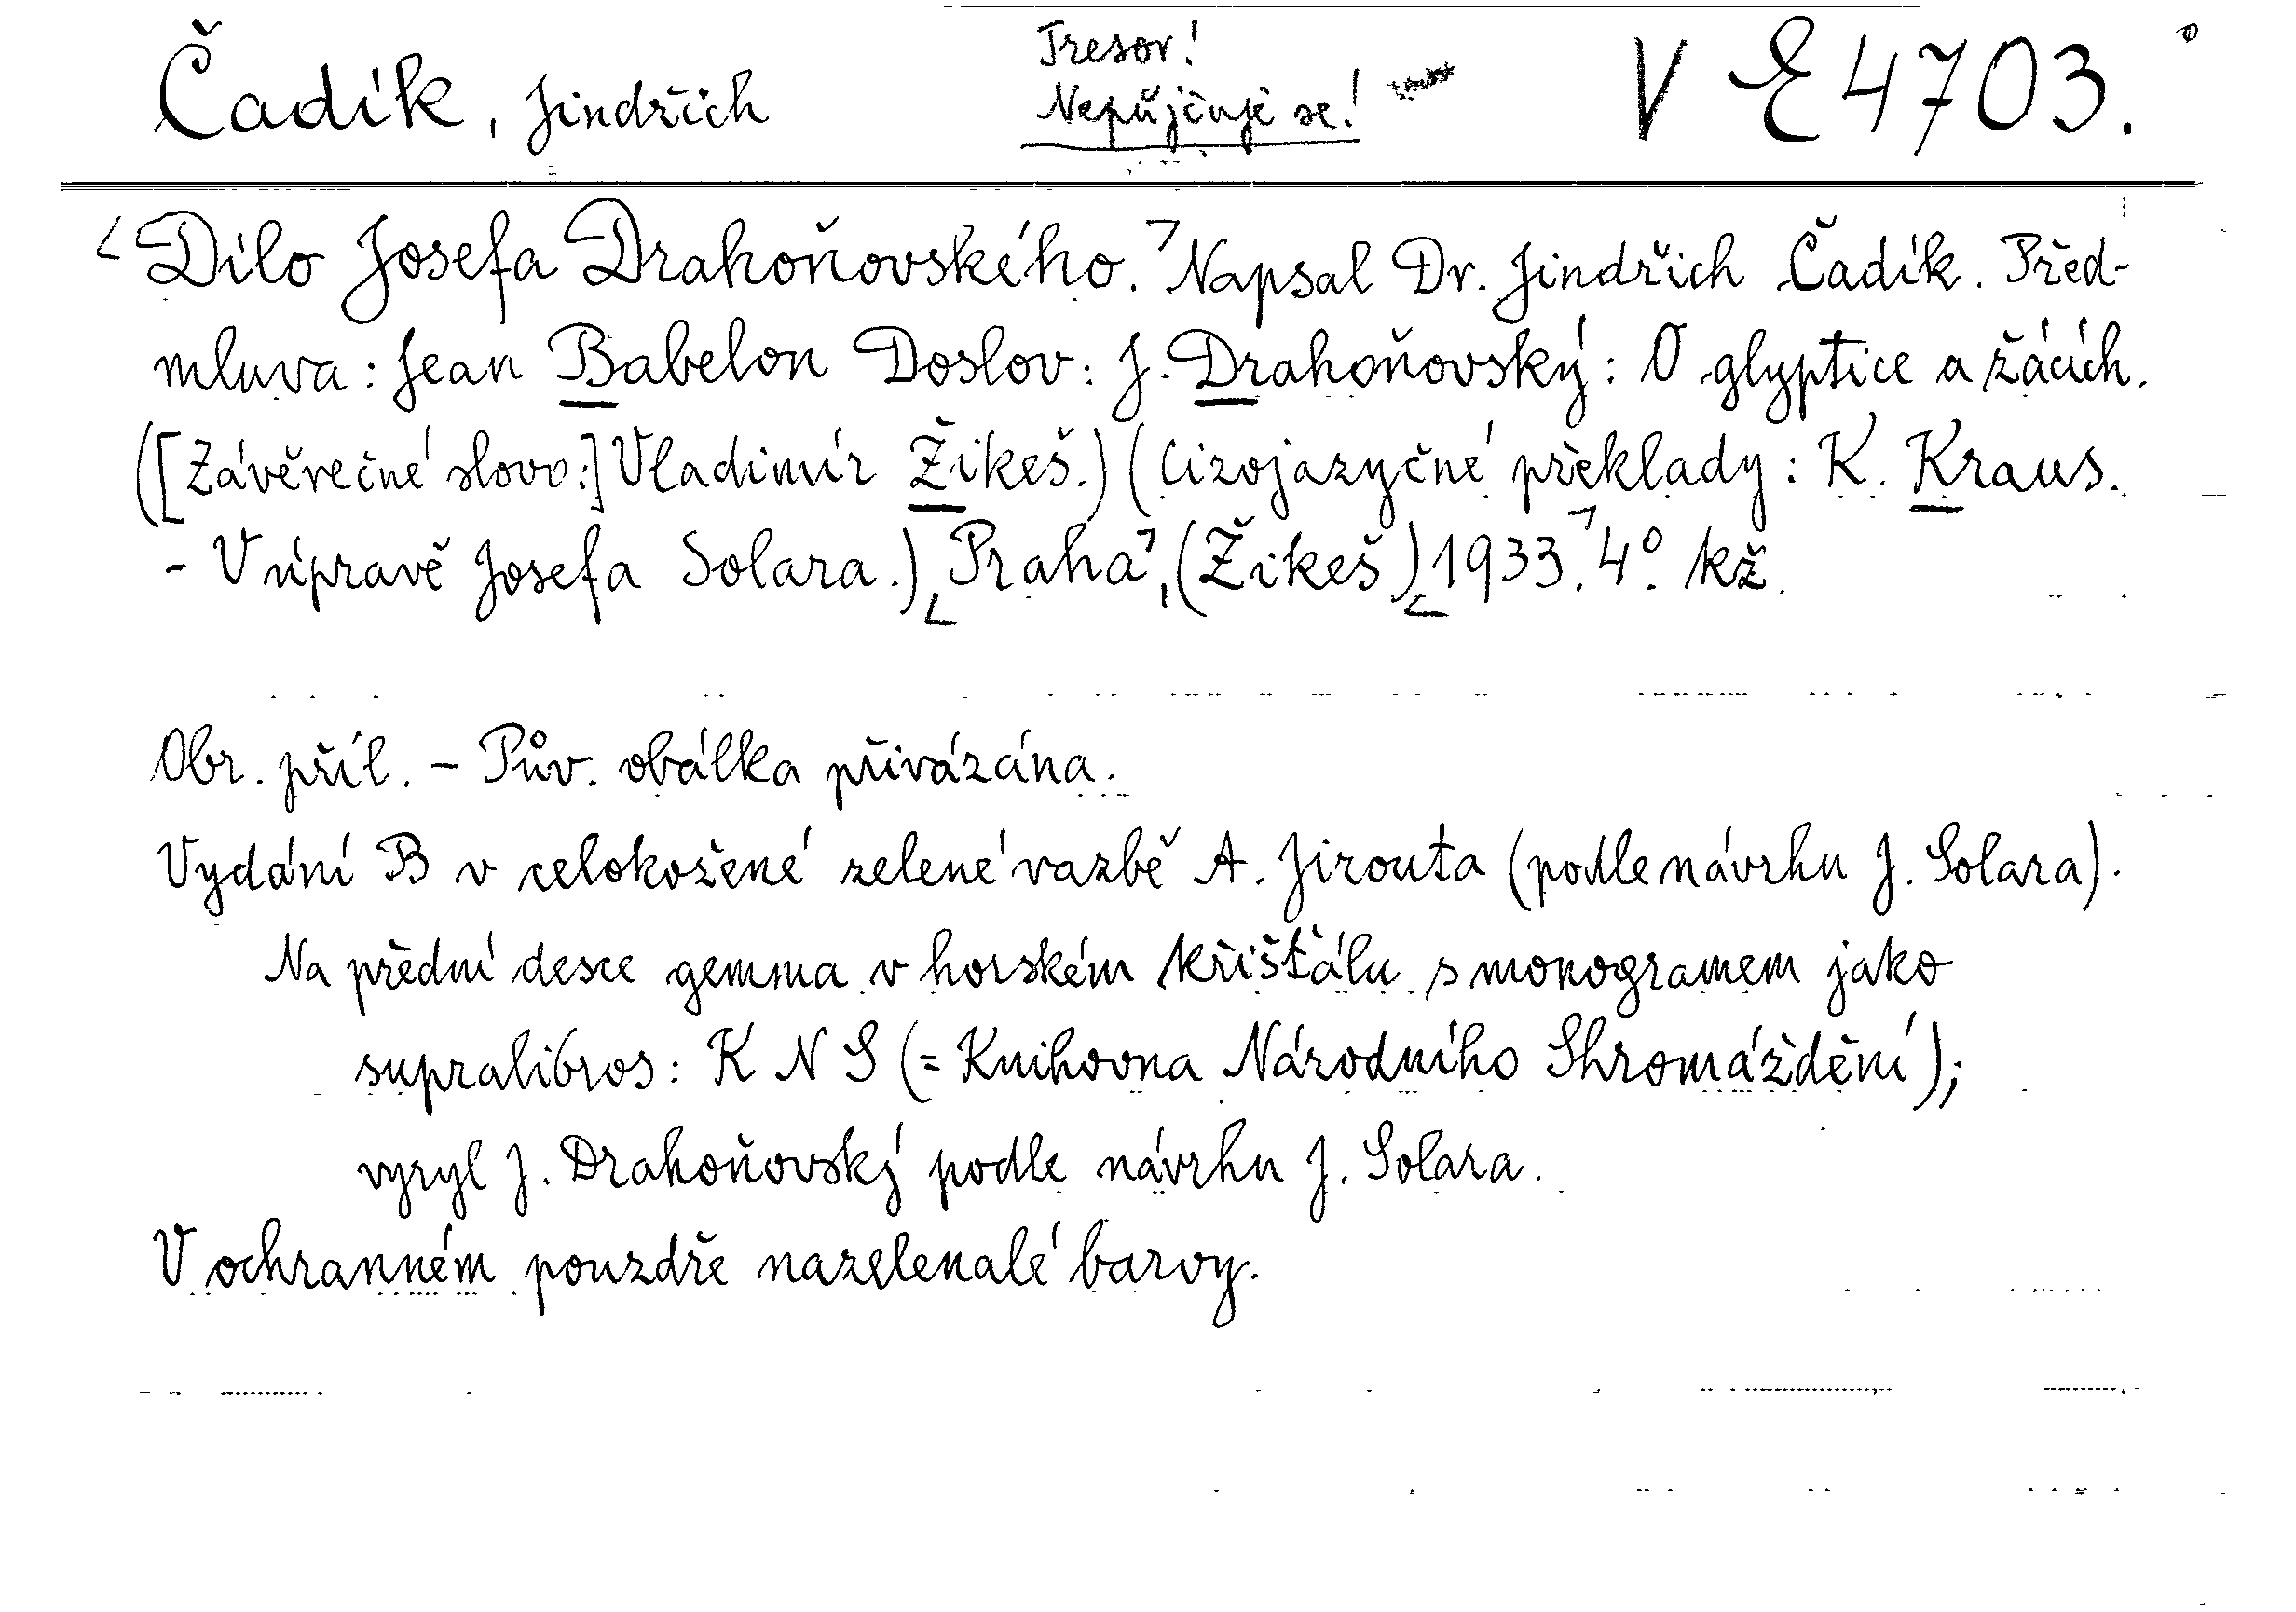 Čadík, Jindřich
Tresor!
Nepůjčuje se!
V E 4703.
Dílo Josefa Drahoňovského. Napsal Dr. Jindřich Čadík. Před-
mluva: Jean Babelon Doslov: J. Drahoňovský: O glyptice a žácích.
([Závěrečné slovo:] Vladimír Žikeš.) (Cizojazyčné překlady: K. Kraus.
- V úpravě Josefa Solara.) Praha, (Žikeš) 1933. 4°. kž.
Obr. příl. - Pův. obálka přivázána.
Vydání B v celokožené zelené vazbě A. Jirouta (podle návrhu J. Solara).
Na přední desce gemma v horském křišťálu s monogramem jako
supralibros: K N S (= Knihovna Národního Shromáždění);
vyryl J. Drahoňovský podle návrhu J. Solara.
V ochranném pouzdře nazelenalé barvy.